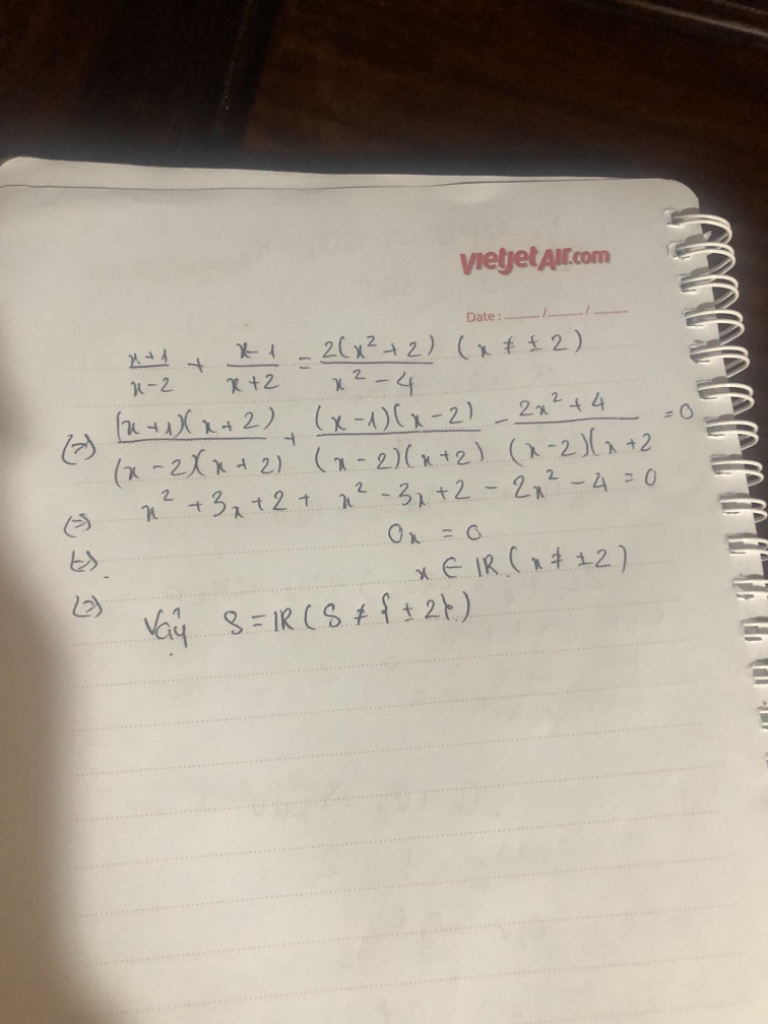 vietjetAir.com
Date : ........... /........... / ...........
x+1/x-2 + x-1/x+2 = 2(x² + 2)/x² - 4 ( x ≠ ± 2 )
(=) (x+1)(x+2)/(x-2)(x+2) + (x-1)(x-2)/(x-2)(x+2) - 2x² + 4/(x-2)(x+2 = 0
(=) x² + 3x + 2 + x² - 3x + 2 - 2x² - 4 = 0
(=) 0x = 0
(=) x ∈ IR ( x ≠ ±2 )
Vậy S = IR ( S ≠ { ± 2 } )